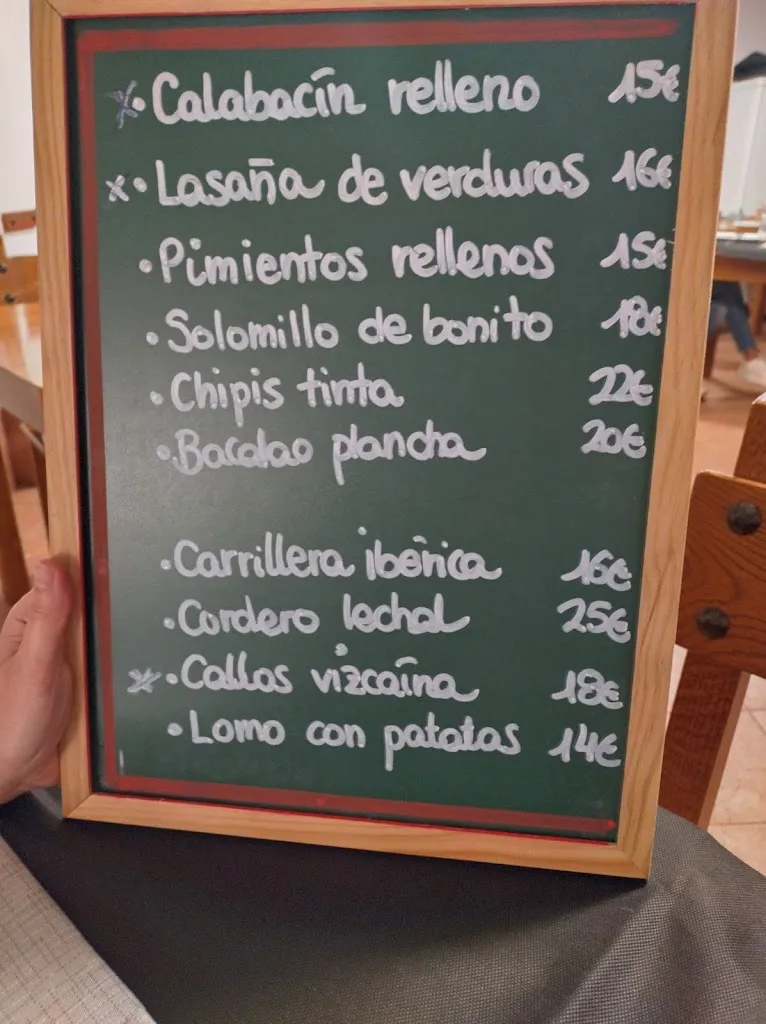 x • Calabacín relleno 15€
x • Lasaña de verduras 16€
• Pimientos rellenos 15€
• Solomillo de bonito 18€
• Chipis tinta 22€
• Bacalao plancha 20€
• Carrillera ibérica 16€
• Cordero lechal 25€
x • Callos vizcaína 18€
• Lomo con patatas 14€